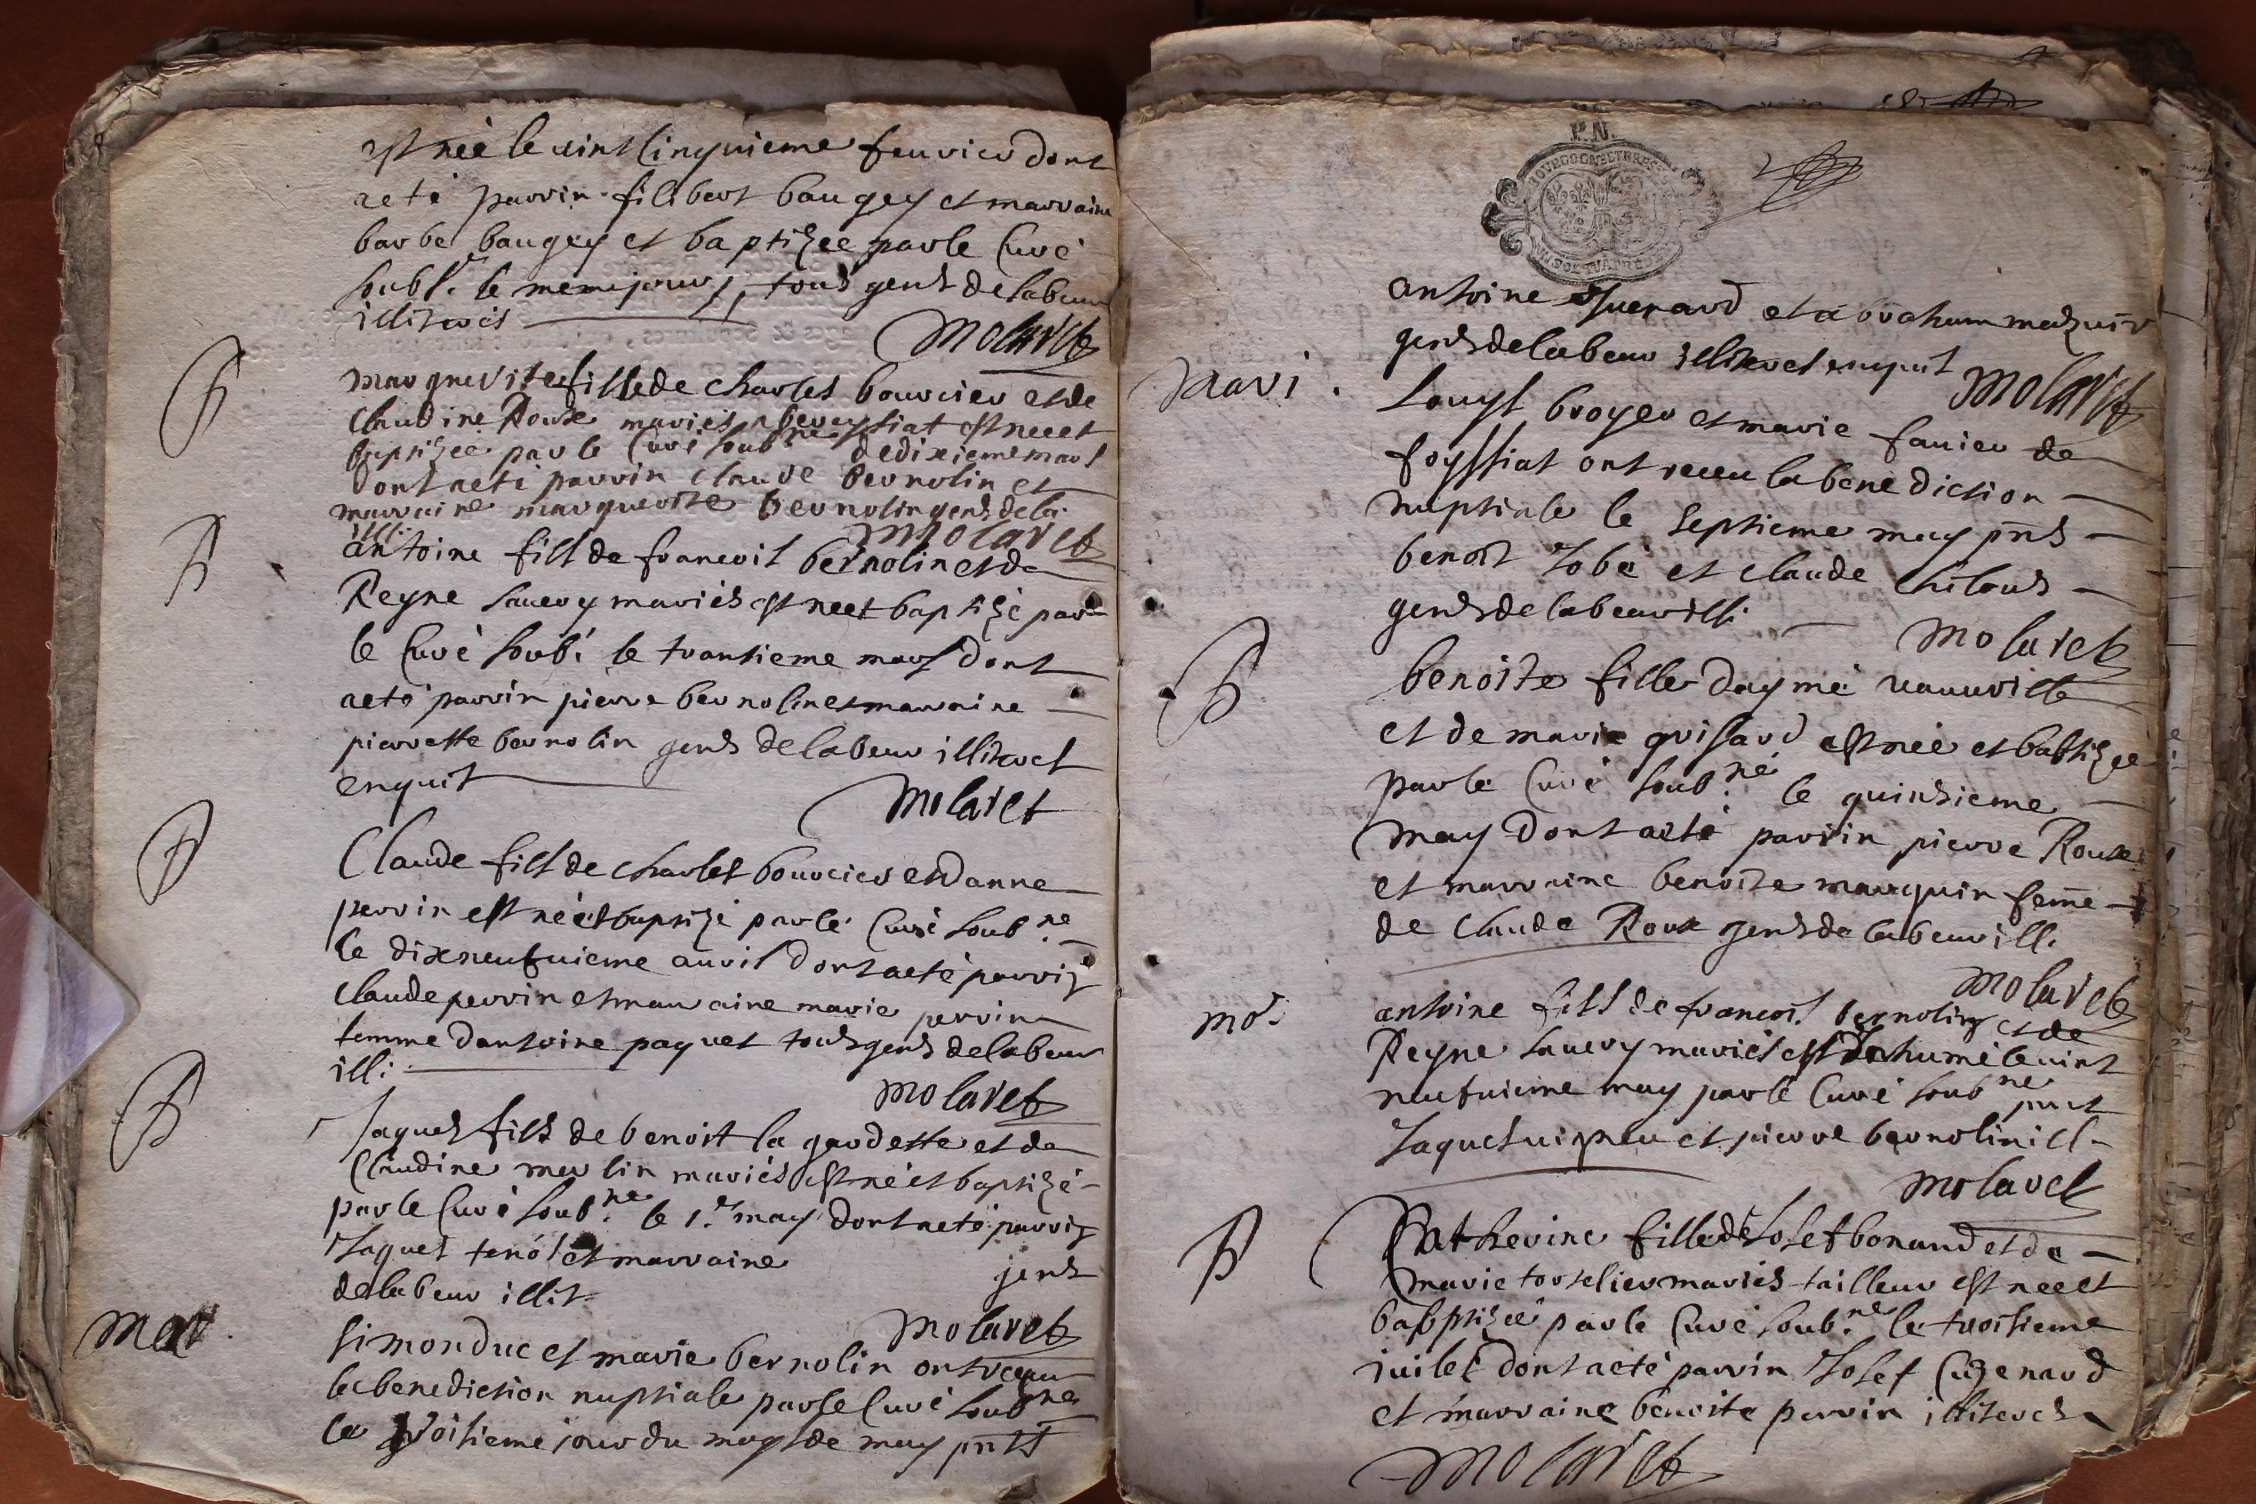 est née le vint cinquieme feuvier dont
aeté parrin filibert baugey et marraine
barbe baugey et baptizée par le Curé
soubs.é le meme jour, tous gens de labeur
illiterés
Molaret
B
marguerite fille de charles bourcier et de
Claudine Roux mariés a bereyssiat est nee et
baptizée par le Curé soub.né le dixieme mars
dont aeté parrin claude bernolin et
marraine marguerite bernolin gens de la.
illi.
Molaret
B
antoine fils de francois bernolin et de
Reyne sauery mariés est né et baptizé par
le Curé soub.é le trantieme mars dont
aeté parrin pierre bernolin et marraine
pierrette bernolin gens de labeur illiteres
enquis
Molaret
B
Claude fils de charles bourcier et danne
perrin est né et baptizé par le Curé soub.né
le dixneufuieme auril dont aeté parrin
claude perrin et marraine marie perrin
femme dantoine paquet tous gens de labeur
illi.
Molaret
B
Jaques fils de benoist la gardette et de
Claudine merlin mariés est né et baptizé
par le Curé soub.né le 1.er may dont aeté parrin
Jaques et marraine
gens
de labeur illit.
Molaret
mar.
Simon duc et marie bernolin ont receu
la benediction nuptiale par le Curé soub.né
le troisieme jour du moys de may pnts
P.N.
2
antoine guerard et abraham
gens de labeur illiteres enquis
Molaret
mari.
Louys broyer et marie fauier de
foyssiat ont receu la benediction
nuptiale le septieme may pnts
benoist Jobé et claude
gens de labeur illi.
Molaret
B
benoite fille daymé
et de marie grisard est née et babtizée
par le Curé soub.né le quinsieme
may dont aeté parrin pierre Roux
et marraine benoite marguin feme
de claude Roux gens de labeur ill.
Molaret
mo.
antoine fils de francois bernolin et de
Reyne sauery mariés est inhumé le vint
neufuieme may par le Curé soub.né pnts
Jaques et pierre bernolin ill.
Molaret
B
Catherine fille de Josef bonand et de
marie tortelier mariés tailleur est née et
babptizée par le Curé soub.né le troisieme
iuilet dont aeté parrin Josef Cuzenard
et marraine benoite perrin illiterés
Molaret